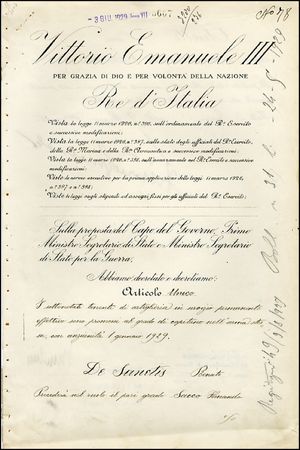 8 GIU 1929 Anno VII
No 78
Vittorio Emanuele III
PER GRAZIA DI DIO E PER VOLONTÀ DELLA NAZIONE
Re d'Italia
Vista la legge 11 marzo 1926, n° 396, sull'ordinamento del R° Esercito
e successive modificazioni;
Vista la legge 11 marzo 1926, n° 397, sullo stato degli ufficiali del R° Esercito,
della R° Marina e della R° Aeronautica e successive modificazioni;
Vista la legge 11 marzo 1926, n° 398, sull'avanzamento nel R° Esercito e successive
modificazioni;
Viste le norme esecutive per la prima applicazione delle leggi 11 marzo 1926,
n° 397 e n° 398;
Viste le leggi sugli stipendi ed assegni fissi per gli ufficiali del R° Esercito;
Sulla proposta del Capo del Governo, Primo
Ministro Segretario di Stato e Ministro Segretario
di Stato per la Guerra;
Abbiamo decretato e decretiamo:
Articolo Unico
I sottonotati tenenti di artiglieria in servizio permanente
effettivo sono promossi al grado di capitano nell'arma stes
sa, con anzianità 1 gennaio 1929.
De Sanctis Renato
Precederà nel ruolo il pari grado Sacco Fernando